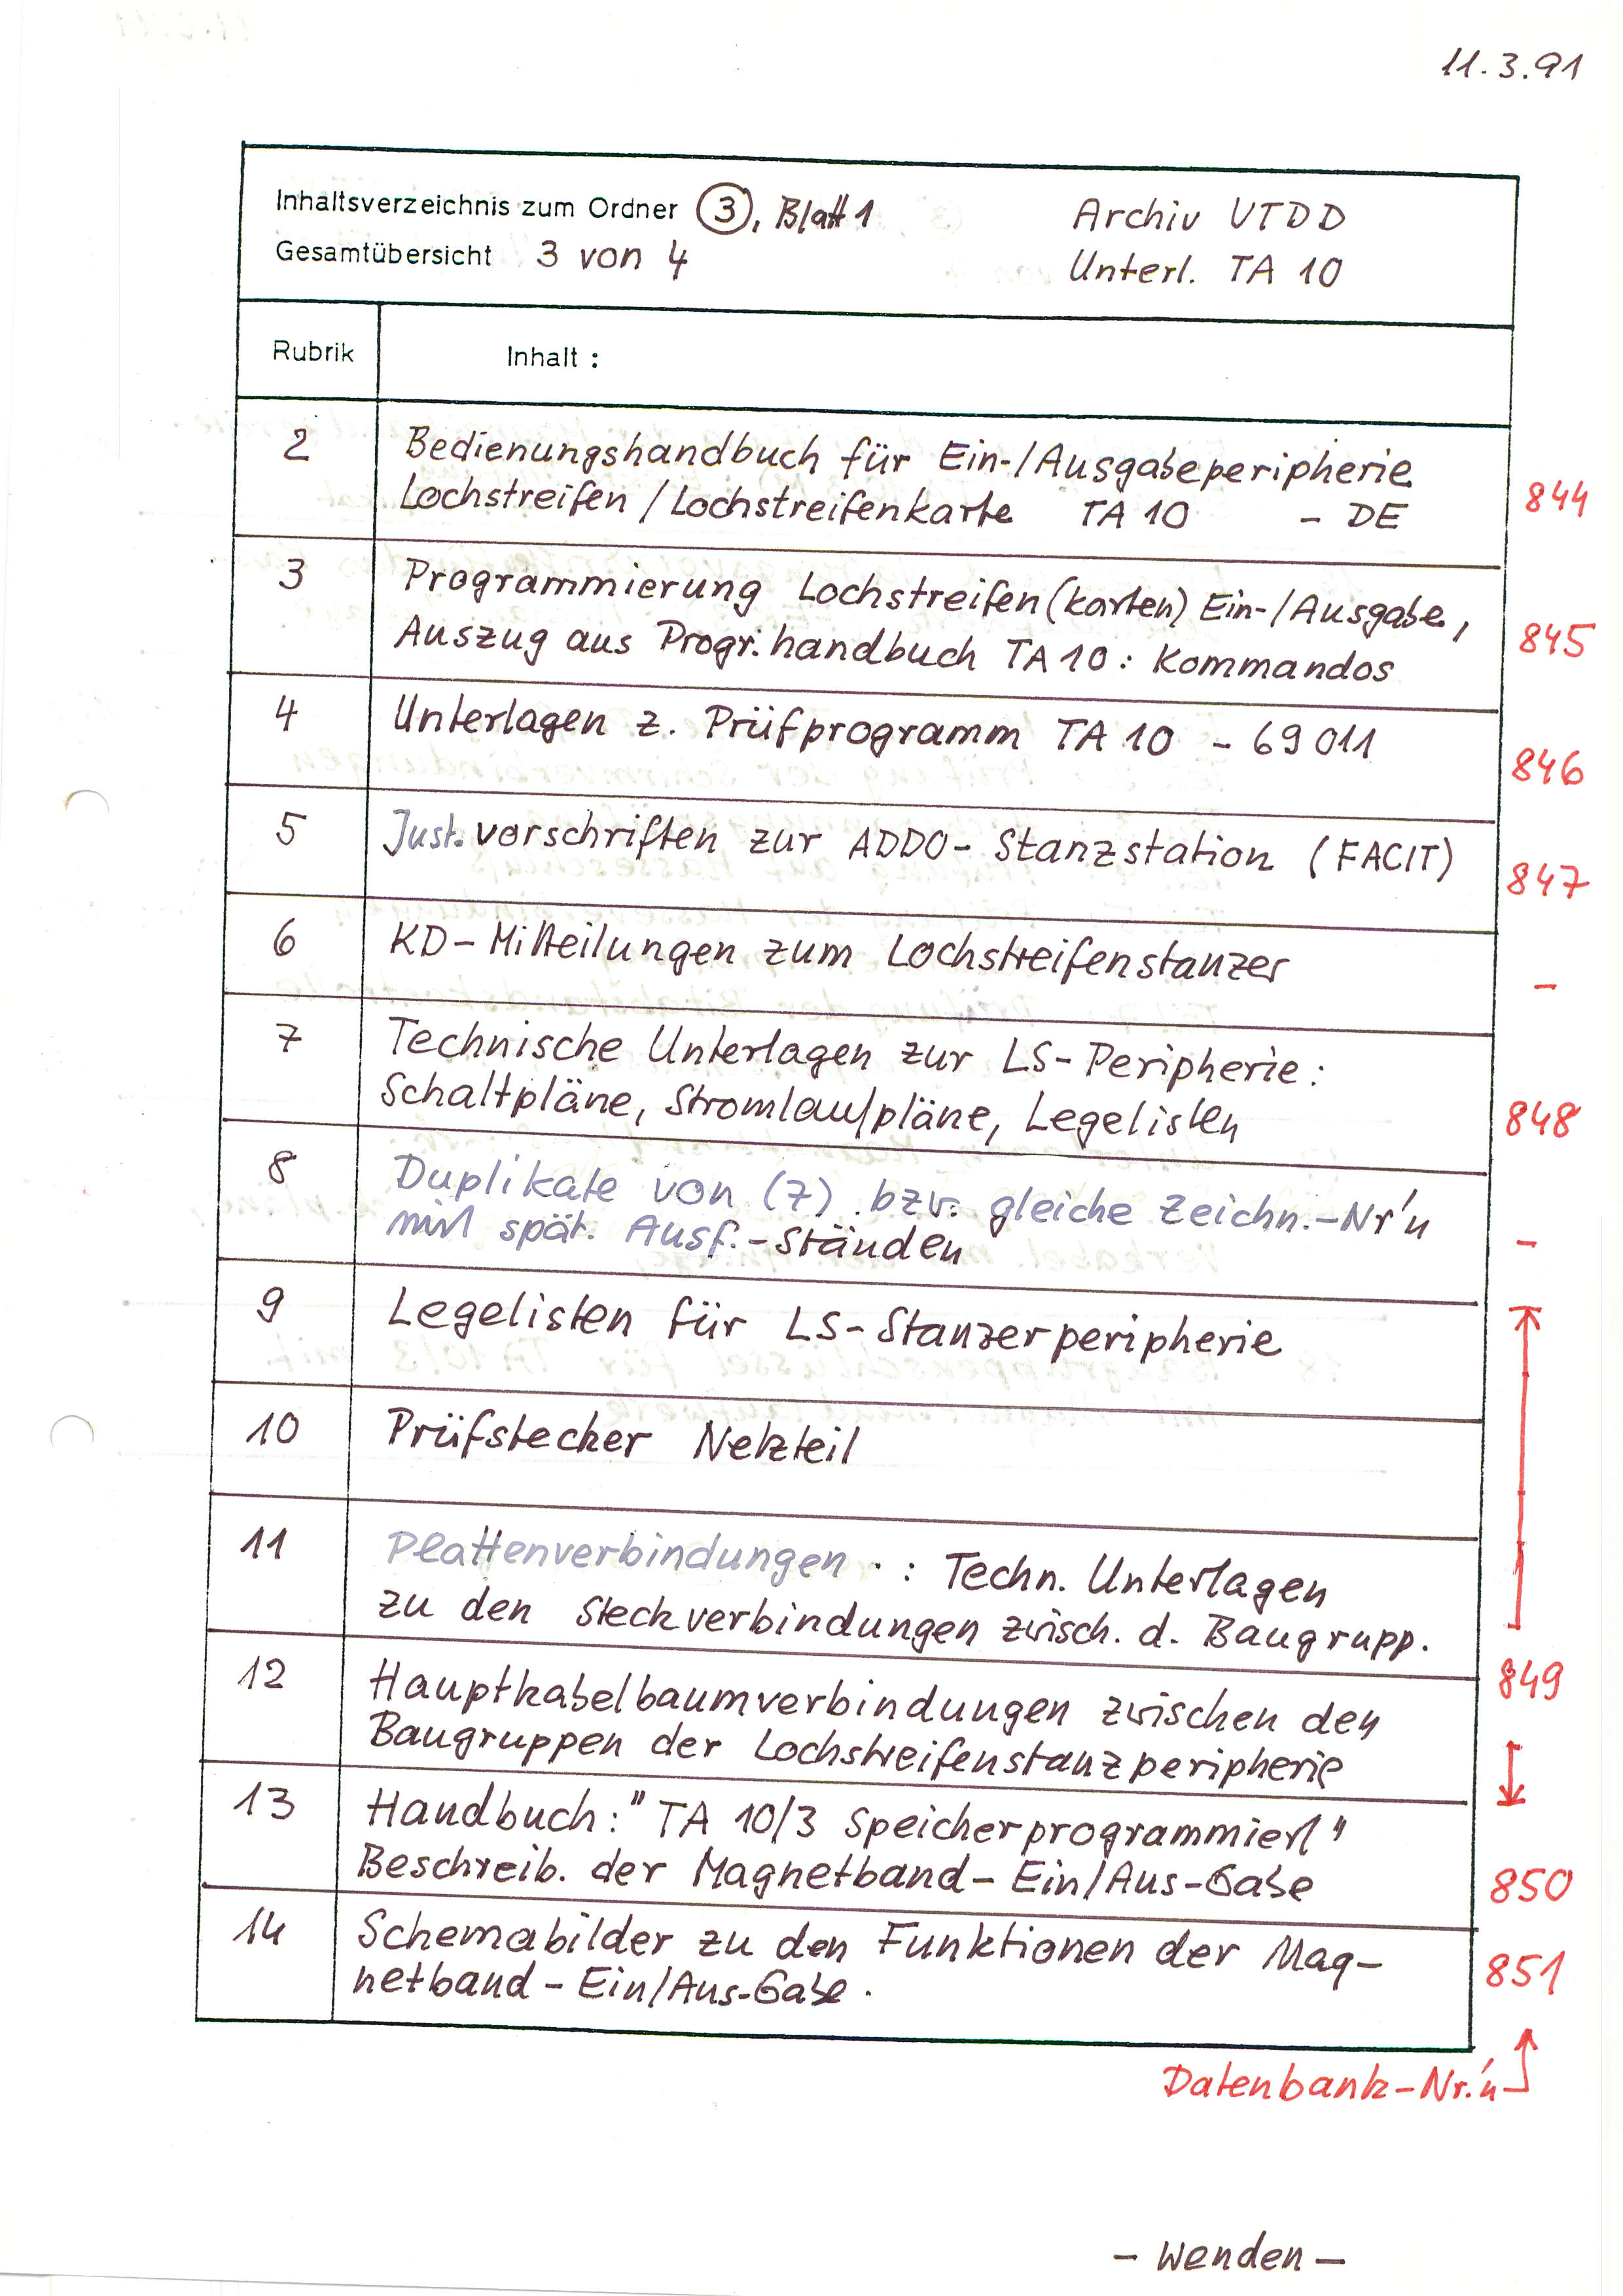 11.3.91
Inhaltsverzeichnis zum Ordner 3, Blatt 1
Archiv VTDD
Gesamtübersicht 3 von 4
Unterl. TA 10
Rubrik
Inhalt :
2
Bedienungshandbuch für Ein-/Ausgabeperipherie
Lochstreifen / Lochstreifenkarte TA 10 - DE
844
3
Programmierung Lochstreifen(karten) Ein-/Ausgabe,
Auszug aus Progr.handbuch TA 10: Kommandos
845
4
Unterlagen z. Prüfprogramm TA 10 - 69 011
846
5
Just.vorschriften zur ADDO-Stanzstation (FACIT)
847
6
KD-Mitteilungen zum Lochstreifenstanzer
-
7
Technische Unterlagen zur LS-Peripherie:
Schaltpläne, Stromlaufpläne, Legelisten
848
8
Duplikate von (7) bzw. gleiche Zeichn.-Nr'n
mit spät. Ausf.-Ständen
-
9
Legelisten für LS-Stanzerperipherie
10
Prüfstecker Netzteil
11
Plattenverbindungen : Techn. Unterlagen
zu den Steckverbindungen zwisch. d. Baugrupp.
849
12
Hauptkabelbaumverbindungen zwischen den
Baugruppen der Lochstreifenstanzperipherie
13
Handbuch: "TA 10/3 Speicherprogrammiert"
Beschreib. der Magnetband-Ein/Aus-Gabe
850
14
Schemabilder zu den Funktionen der Mag-
netband-Ein/Aus-Gabe.
851
Datenbank-Nr.'n
- Wenden -